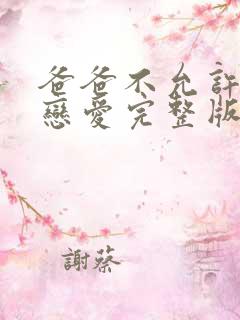 爸爸不允許
戀愛完整版
謝蔡